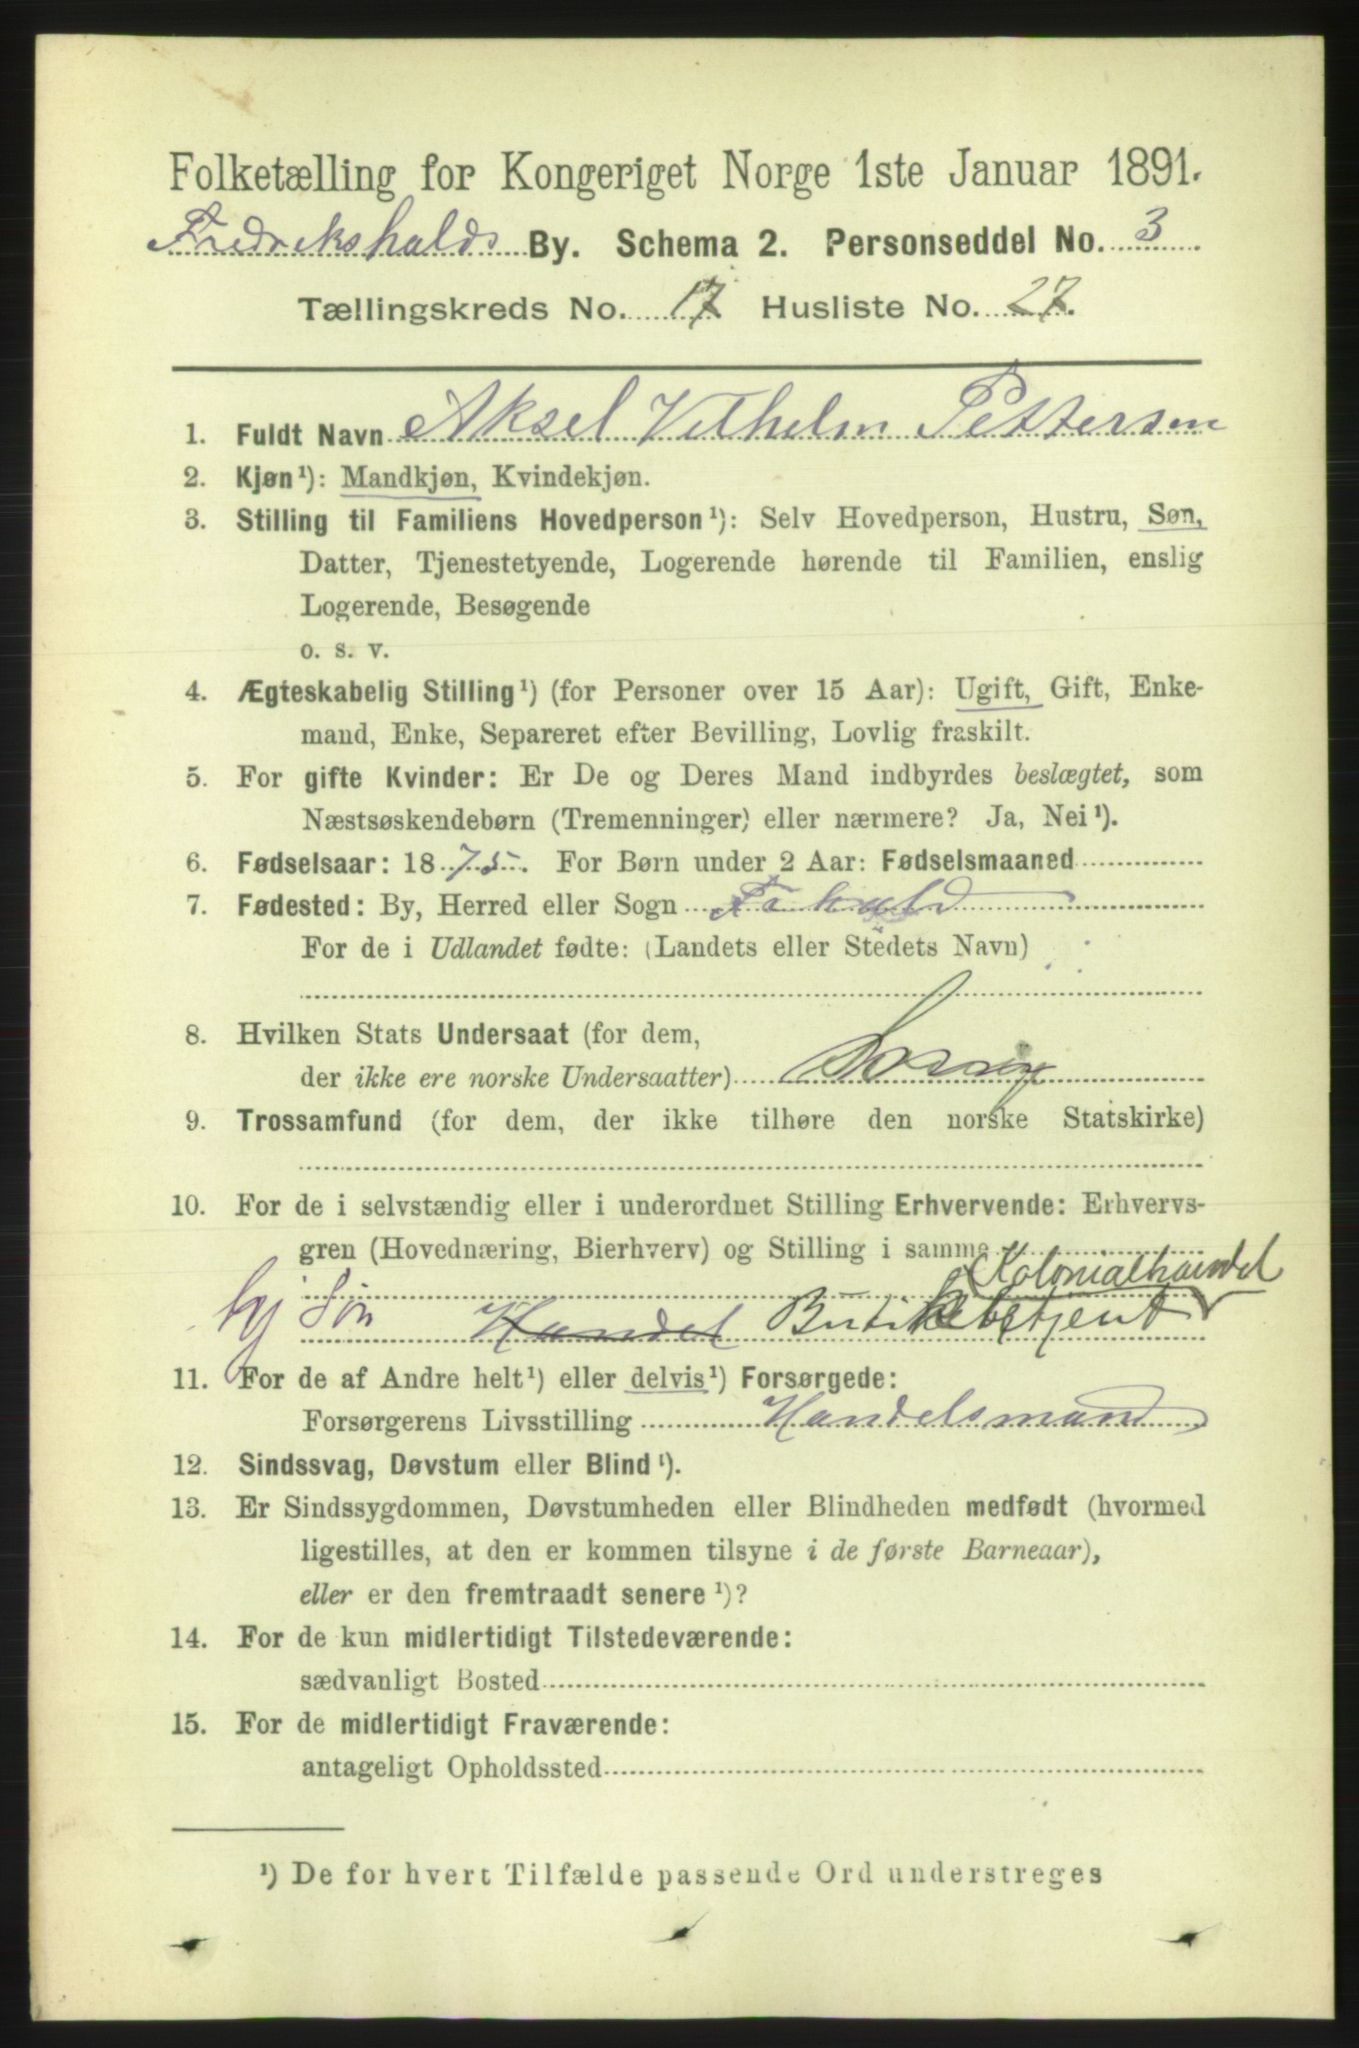 Folketælling for Kongeriget Norge 1ste Januar 1891.
Fredrikshalds By. Schema 2. Personseddel No. 3
Tællingskreds No. 17 Husliste No. 27.
1. Fuldt Navn Aksel Vilhelm Pettersen
2. Kjøn¹): Mandkjøn, Kvindekjøn.
3. Stilling til Familiens Hovedperson¹): Selv Hovedperson, Hustru, Søn,
Datter, Tjenestetyende, Logerende hørende til Familien, enslig
Logerende, Besøgende
o. s. v.
4. Ægteskabelig Stilling¹) (for Personer over 15 Aar): Ugift, Gift, Enke-
mand, Enke, Separeret efter Bevilling, Lovlig fraskilt.
5. For gifte Kvinder: Er De og Deres Mand indbyrdes beslægtet, som
Næstsøskendebørn (Tremenninger) eller nærmere? Ja, Nei¹).
6. Fødselsaar: 1875. For Børn under 2 Aar: Fødselsmaaned
7. Fødested: By, Herred eller Sogn Fr hald
For de i Udlandet fødte: (Landets eller Stedets Navn)
8. Hvilken Stats Undersaat (for dem,
der ikke ere norske Undersaatter)
9. Trossamfund (for dem, der ikke tilhøre den norske Statskirke)
10. For de i selvstændig eller i underordnet Stilling Erhvervende: Erhvervs-
gren (Hovednæring, Bierhverv) og Stilling i samme
Kolonialhandel
hj Søn Handel Butikbetjent
11. For de af Andre helt¹) eller delvis¹) Forsørgede:
Forsørgerens Livsstilling Handelsmand
12. Sindssvag, Døvstum eller Blind¹).
13. Er Sindssygdommen, Døvstumheden eller Blindheden medfødt (hvormed
ligestilles, at den er kommen tilsyne i de første Barneaar),
eller er den fremtraadt senere¹)?
14. For de kun midlertidigt Tilstedeværende:
sædvanligt Bosted
15. For de midlertidigt Fraværende:
antageligt Opholdssted
¹) De for hvert Tilfælde passende Ord understreges